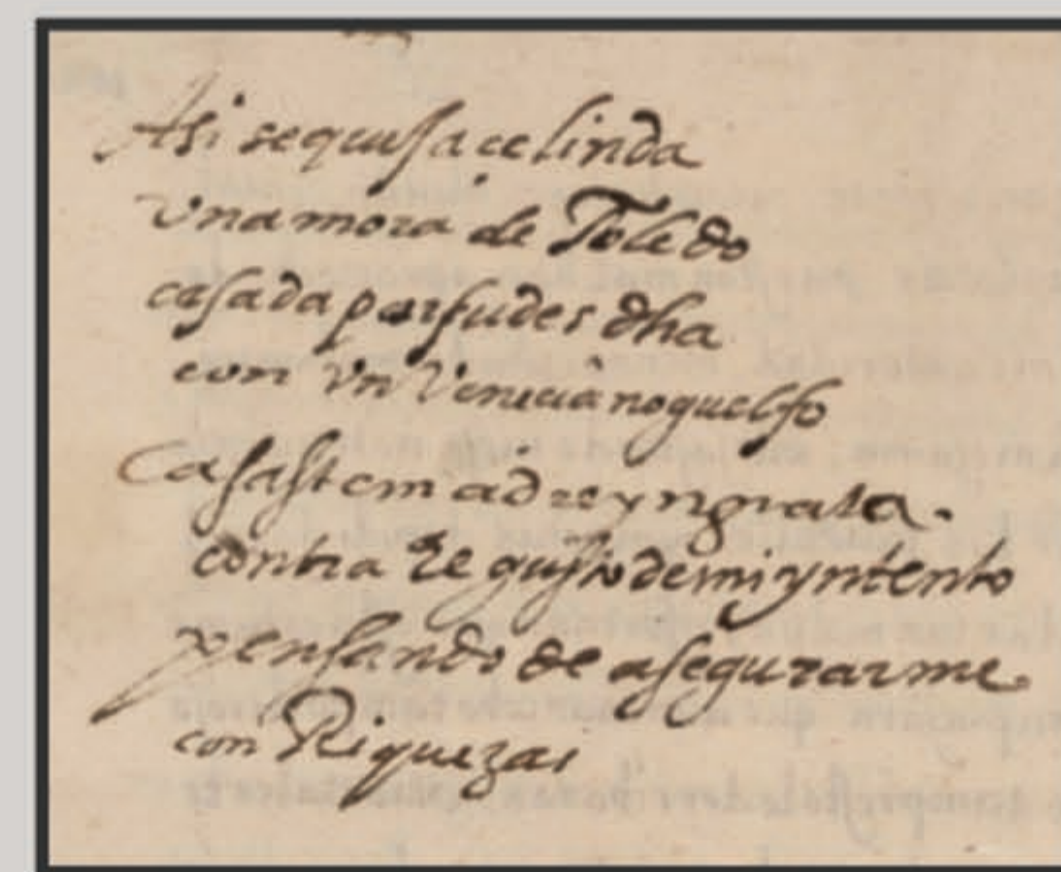 Asi se quija celinda
vna mora de Toledo
casada por su desdha
con vn Veneciano quelfo
Casastem adre yngrata.
contra el gusto de mi yntento
pensando de asegurarme
con Riquezas